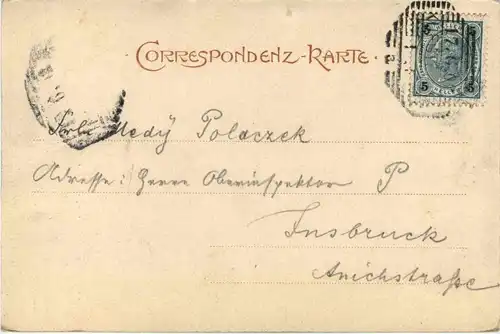 CORRESPONDENZ-KARTE
5 5
Frl. Medÿ Polaczek
Adresse: Herrn Oberinspektor P
Innsbruck
Anichstraße